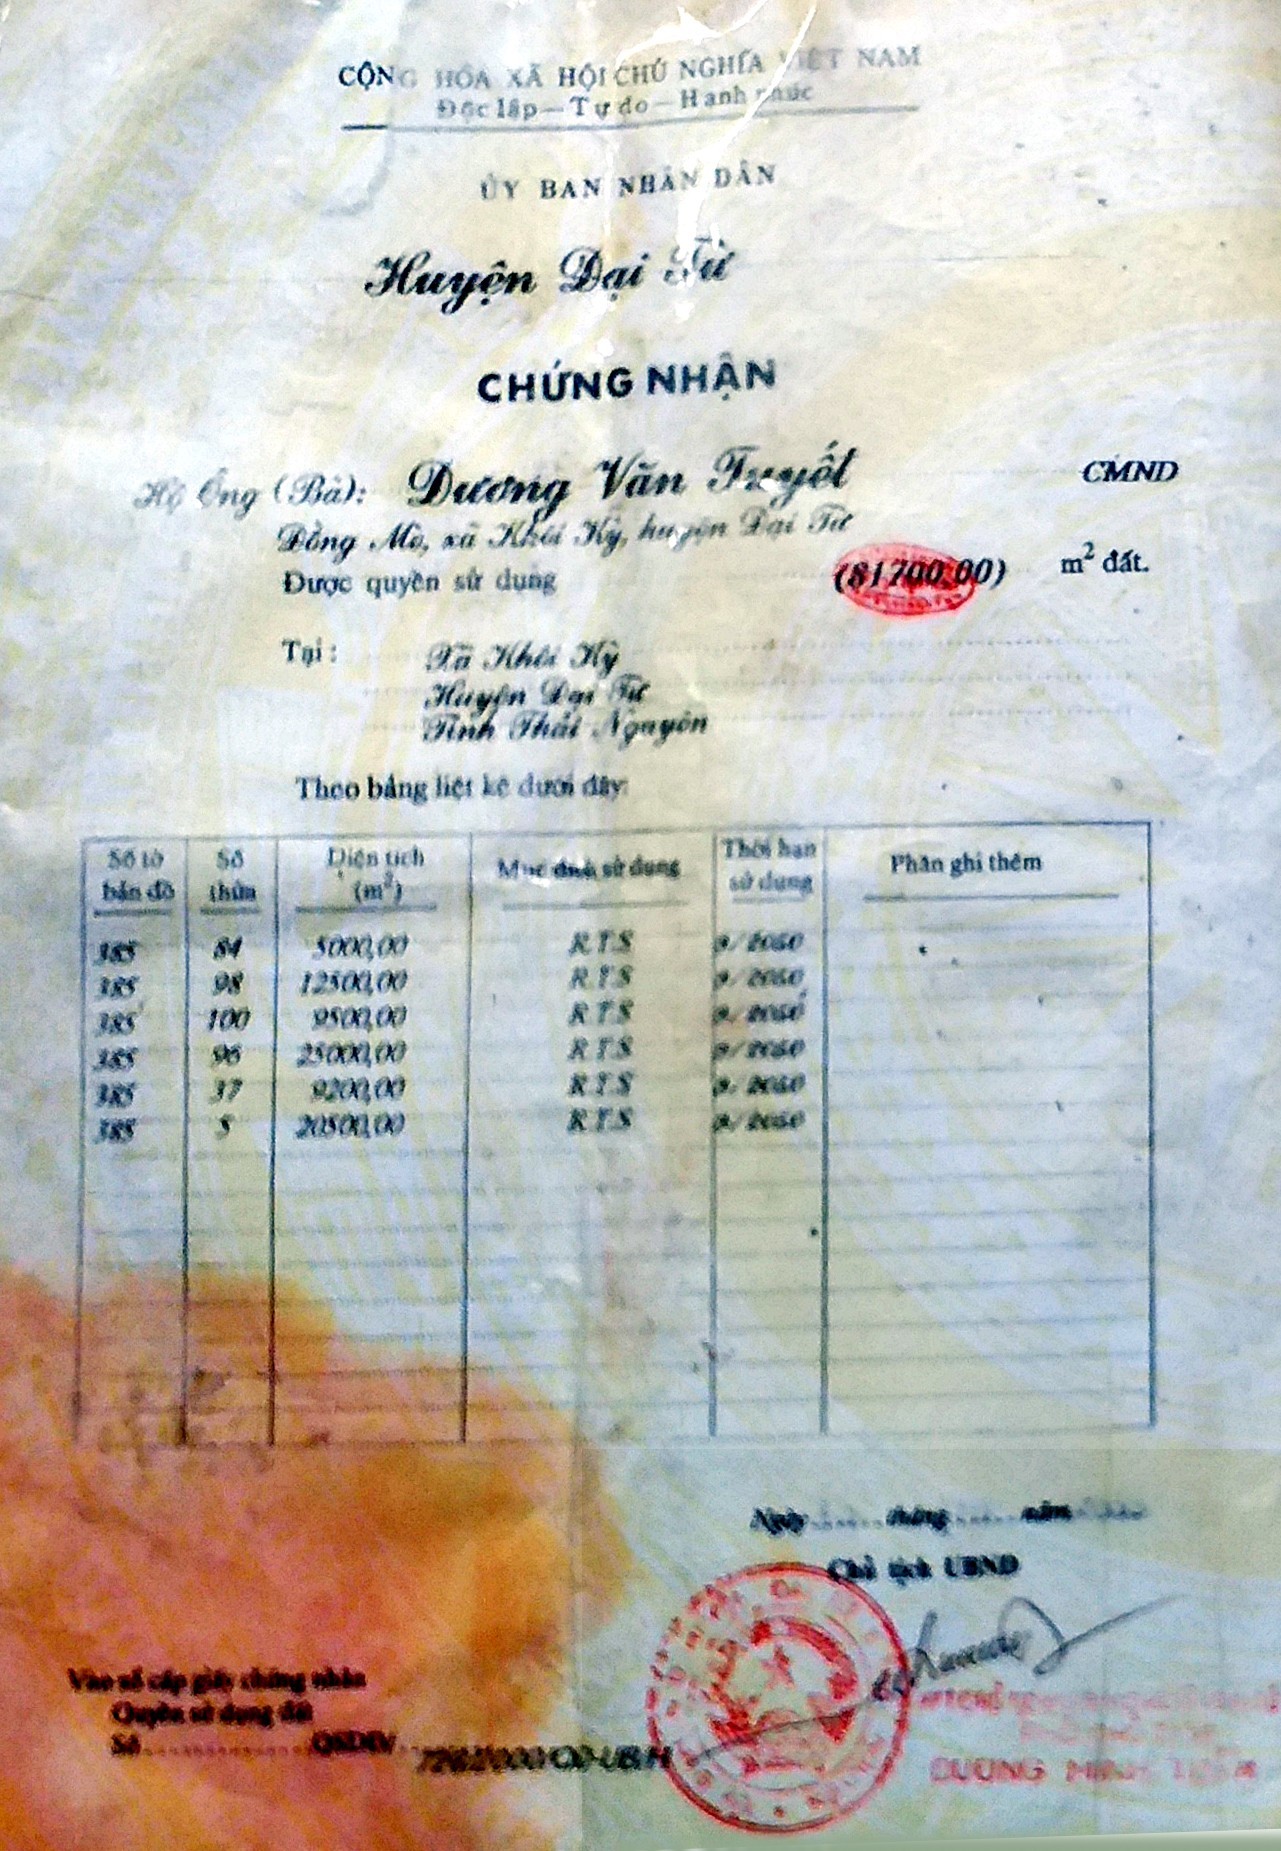 CỘNG HÒA XÃ HỘI CHỦ NGHĨA VIỆT NAM
Độc lập — Tự do — Hạnh phúc
ỦY BAN NHÂN DÂN
Huyện Đại Từ
CHỨNG NHẬN
Hộ Ông (Bà): Dương Văn Tuyết CMND
Đồng Mè, xã Khôi Kỳ, huyện Đại Từ
Được quyền sử dụng (81700,00) m² đất.
Tại : Xã Khôi Kỳ
Huyện Đại Từ
Tỉnh Thái Nguyên
Theo bảng liệt kê dưới đây:
Số tờ bản đồ Số thửa Diện tích (m²) Mục đích sử dụng Thời hạn sử dụng Phần ghi thêm
385 84 5000,00 R.T.S 9/2050
385 98 12500,00 R.T.S 9/2050
385 100 9500,00 R.T.S 9/2050
385 96 25000,00 R.T.S 9/2050
385 37 9200,00 R.T.S 9/2050
385 5 20500,00 R.T.S 9/2050
Ngày tháng năm
Chủ tịch UBND
Vào sổ cấp giấy chứng nhận
Quyền sử dụng đất
Số QSDĐ/
DƯƠNG MINH